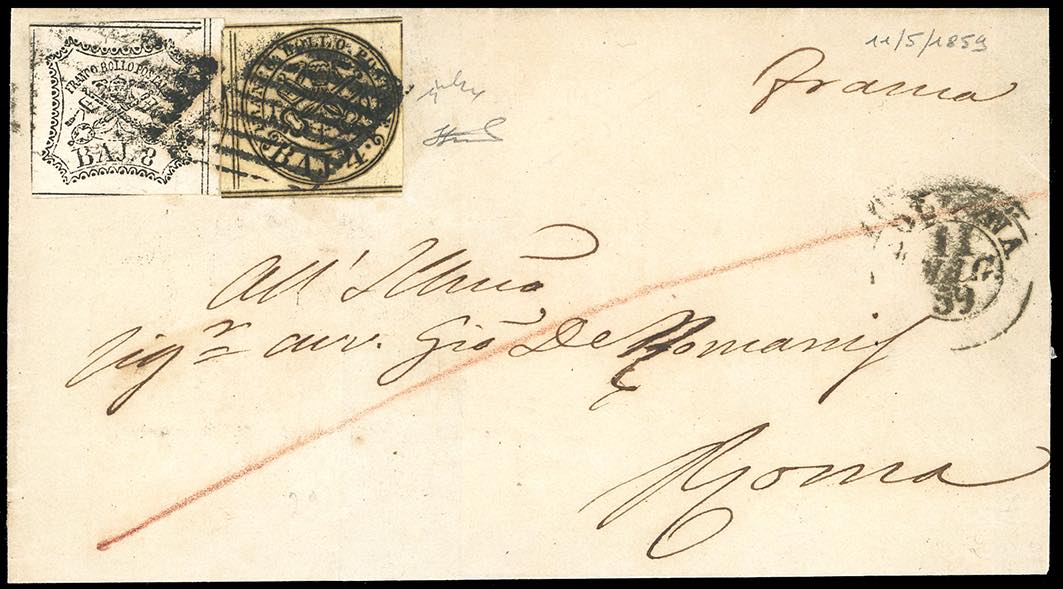 11/5/1859
Franca
FRANCO BOLLO POSTALE
BAJ 8
FRANCO BOLLO POSTALE
BAJ. 4.
11
MAG
59
All' Illmo
Sigr avv. Gio De Romanis
Roma